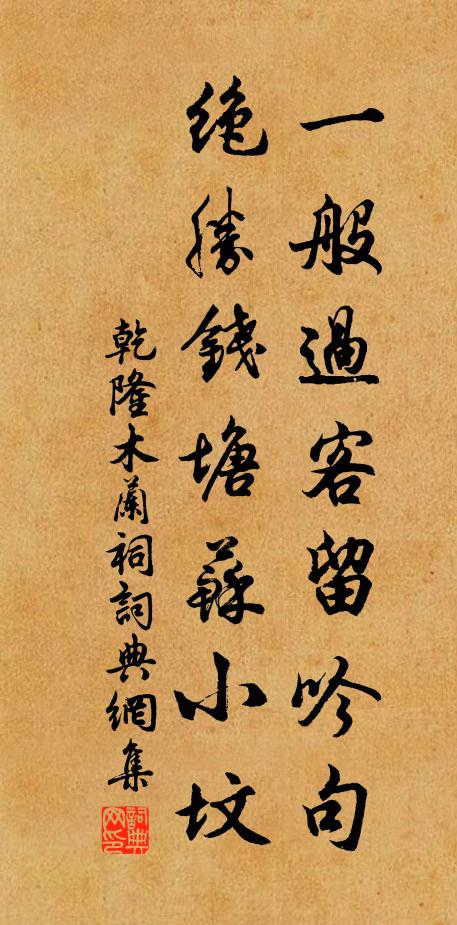 一般過客留吟句
絶勝錢塘蘇小坟
乾隆木蘭祠詞典網集
詞典网印